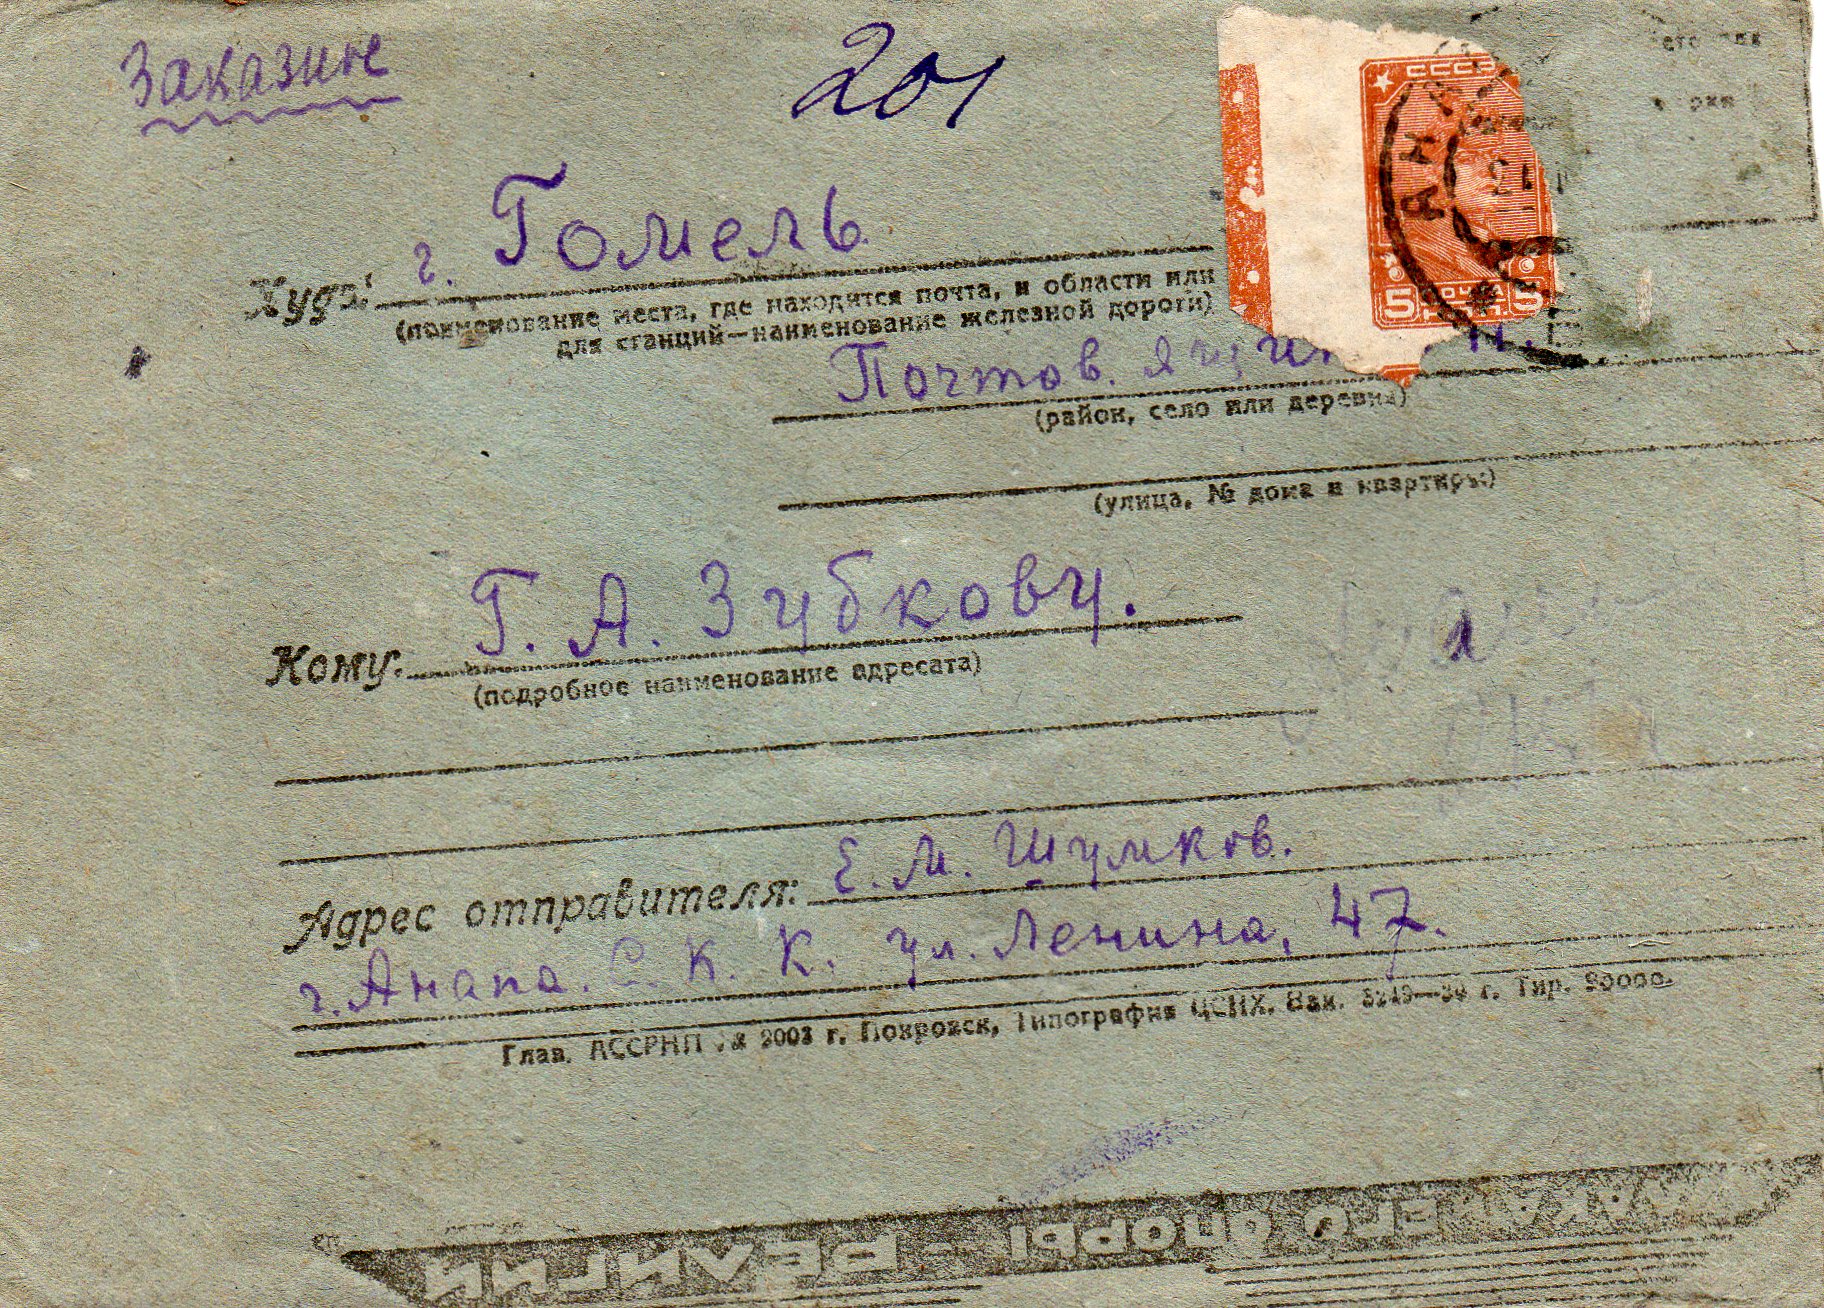 Заказное
201
СССР
АНА
5 ПОЧТА 5
Куда: г. Гомель
(наименование места, где находится почта, и области или
для станций—наименование железной дороги)
Почтов. ящик
(район, село или деревня)
(улица, № дома и квартиры)
Кому: Г. А. Зубкову.
(подробное наименование адресата)
Адрес отправителя: Е. М. Шумков.
г. Анапа. С. К. К. ул. Ленина, 47.
Глав. АССРНП 2003 г. Покровск, Типография ЦСНХ. Зак. г. Тир.
ЕГО ОПОРЫ - РЕЛИГИИ